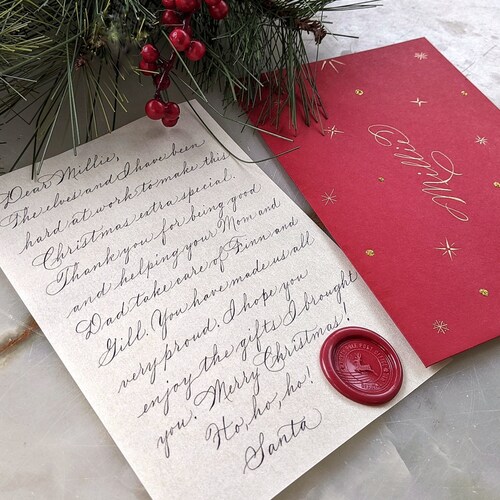 Dear Millie,
The elves and I have been
hard at work to make this
Christmas extra special.
Thank you for being good
and helping your Mom and
Dad take care of Finn and
Gill. You have made us all
very proud. I hope you
enjoy the gifts I brought
you. Merry Christmas!
Ho, ho, ho!
Santa
Millie